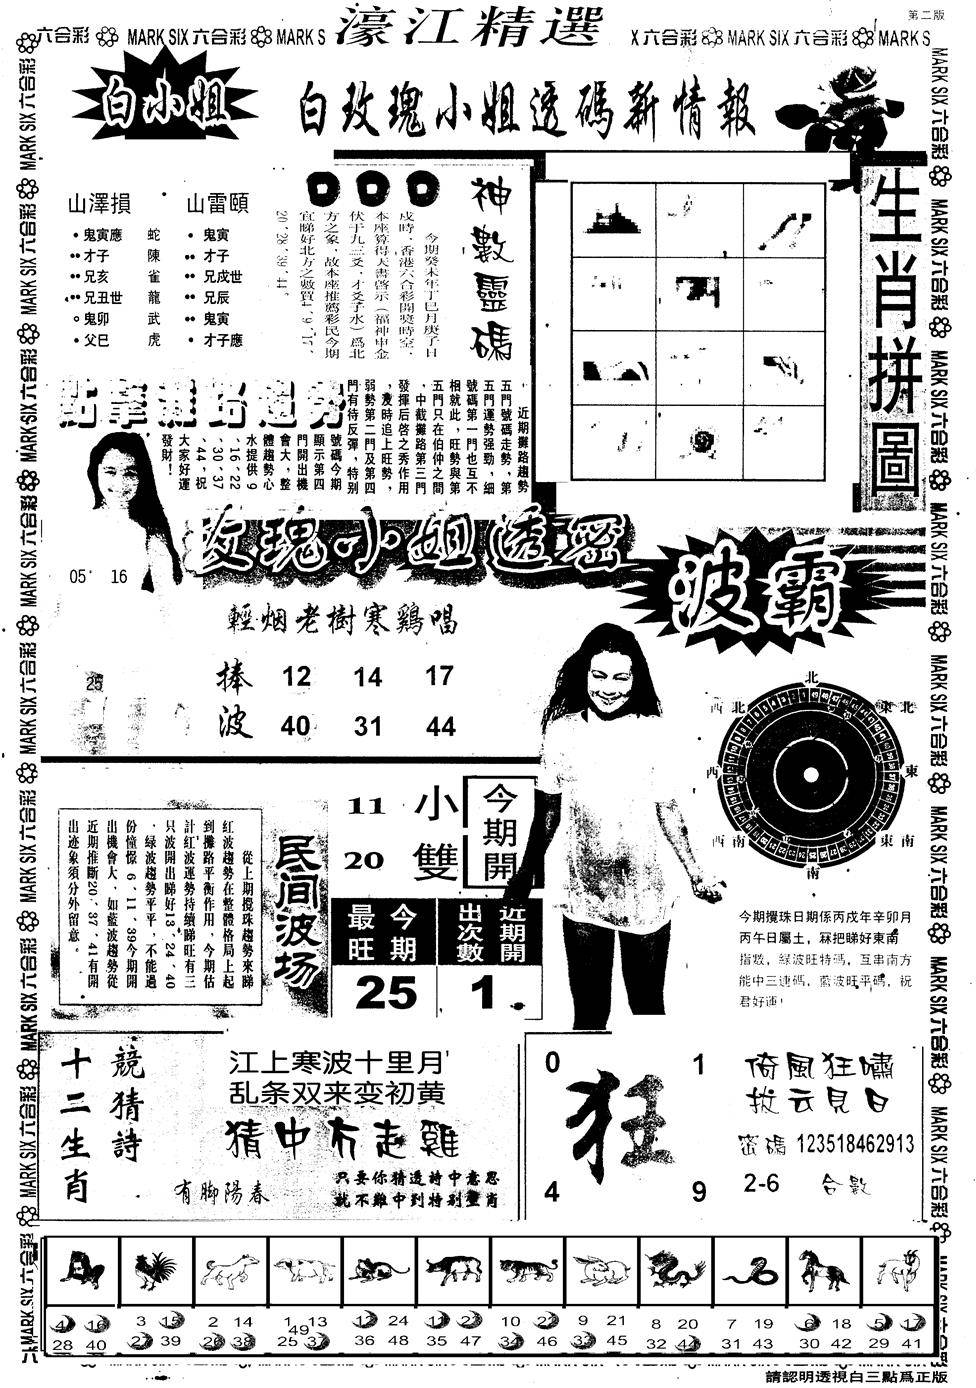 第二版
六合彩 MARK SIX 六合彩 MARK S
濠江精選
X 六合彩 MARK SIX 六合彩 MARK S
白小姐
白玫瑰小姐透碼新情報
山澤損
山雷頤
鬼寅應 蛇 鬼寅
才子 陳 才子
兄亥 雀 兄戌世
兄丑世 龍 兄辰
鬼卯 武 鬼寅
父巳 虎 才子應
神數靈碼
今期癸未年丁巳月庚子日
戌時，香港六合彩開獎時空，
本座算得天書啓示（福神申金
伏于九三爻，才爻子水）爲北
方之象，故本座推薦彩民今期
宜睇好北方之數買4、9、17、
20、28、39、44。
生肖拼圖
近期攤路趨勢
五門號碼走勢，第
五門運勢强勁，細
號碼第一門也互不
相就此，旺勢與第
五門只在伯仲之間
，中截攤路第三門
發揮后啓之秀作用
，灰時追上旺勢，
弱勢第二門及第四
門有待反彈，特别
號碼今期
顯示第四
門開出機
會大，整
體趨勢心
水提供9
、16、22
、30、37
、44，祝
大家好運
發財！
玫瑰小姐透密
05 16
25
輕烟老樹寒鷄唱
捧 12 14 17
波 40 31 44
波霸
北
西北 東北
西 東
西南 東南
南
今期攪珠日期係丙戌年辛卯月
丙午日屬土，冧把睇好東南
指數，緑波旺特碼，互串南方
能中三連碼，藍波旺平碼，祝
君好運！
民间波场
從上期攪珠趨勢來睇
紅波趨勢在整體格局上起
到攤路平衡作用，今期估
計紅波運勢持續睇旺有三
只波開出睇好13、24、40
，緑波趨勢平平，不能過
份憧憬6、11、39今期開
出機會大，如藍波趨勢從
近期推斷20、37、41有開
出迹象須分外留意。
11 小
20 雙
今期開
今期最旺
近期開出次數
25 1
十二生肖
競猜詩
江上寒波十里月
乱条双来变初黄
猜中冇走雞
有脚陽春
只要你猜透詩中意思
就不難中到特别生肖
0 1
狂
4 9
倚風狂嘯
拔云見日
密碼 123518462913
2-6 合數
4 16 3 15 2 14 1 13 12 24 11 23 10 22 9 21 8 20 7 19 6 18 5 17
49
28 40 27 39 26 38 25 37 36 48 35 47 34 46 33 45 32 44 31 43 30 42 29 41
請認明透視白三點爲正版